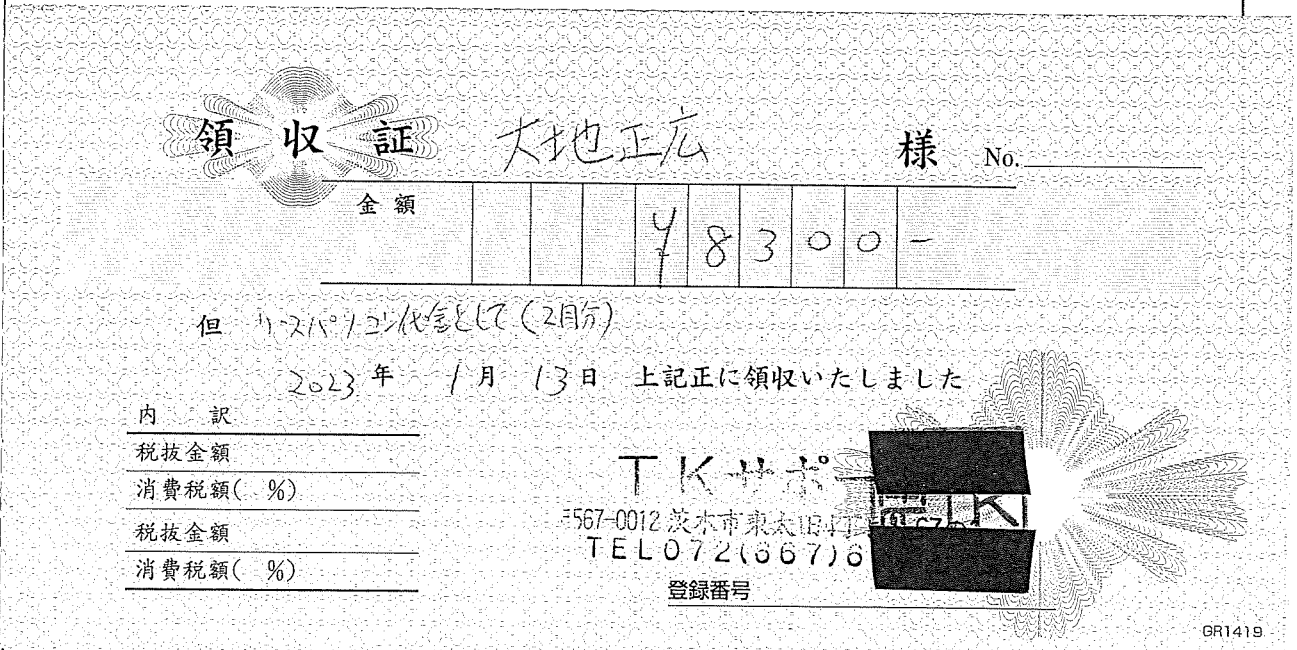 領収証 大地正広 様 No.
金額 ¥8300-
但 リースパソコン代金として(2月分)
2023年 1月 13日 上記正に領収いたしました
内訳
税抜金額
消費税額( %)
税抜金額
消費税額( %)
TKサポー
〒567-0012 茨木市東太田4丁
TEL072(667)6
登録番号
GR1419